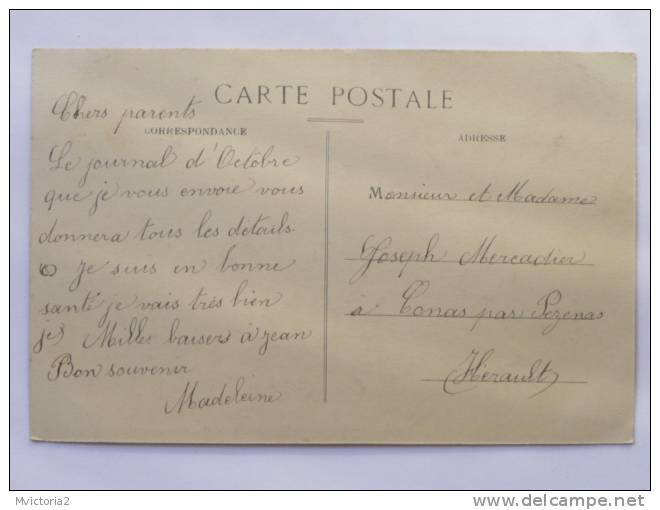 CARTE POSTALE
CORRESPONDANCE
Chers parents
Le journal d'Octobre
que je vous envoie vous
donnera tous les détails.
Je suis en bonne
santé je vais très bien
Milles baisers à Jean
Bon souvenir
Madeleine
ADRESSE
Monsieur et Madame
Joseph Mercadier
à Conas par Pezenas
(Hérault)
Mvictoria2
www.delcampe.net